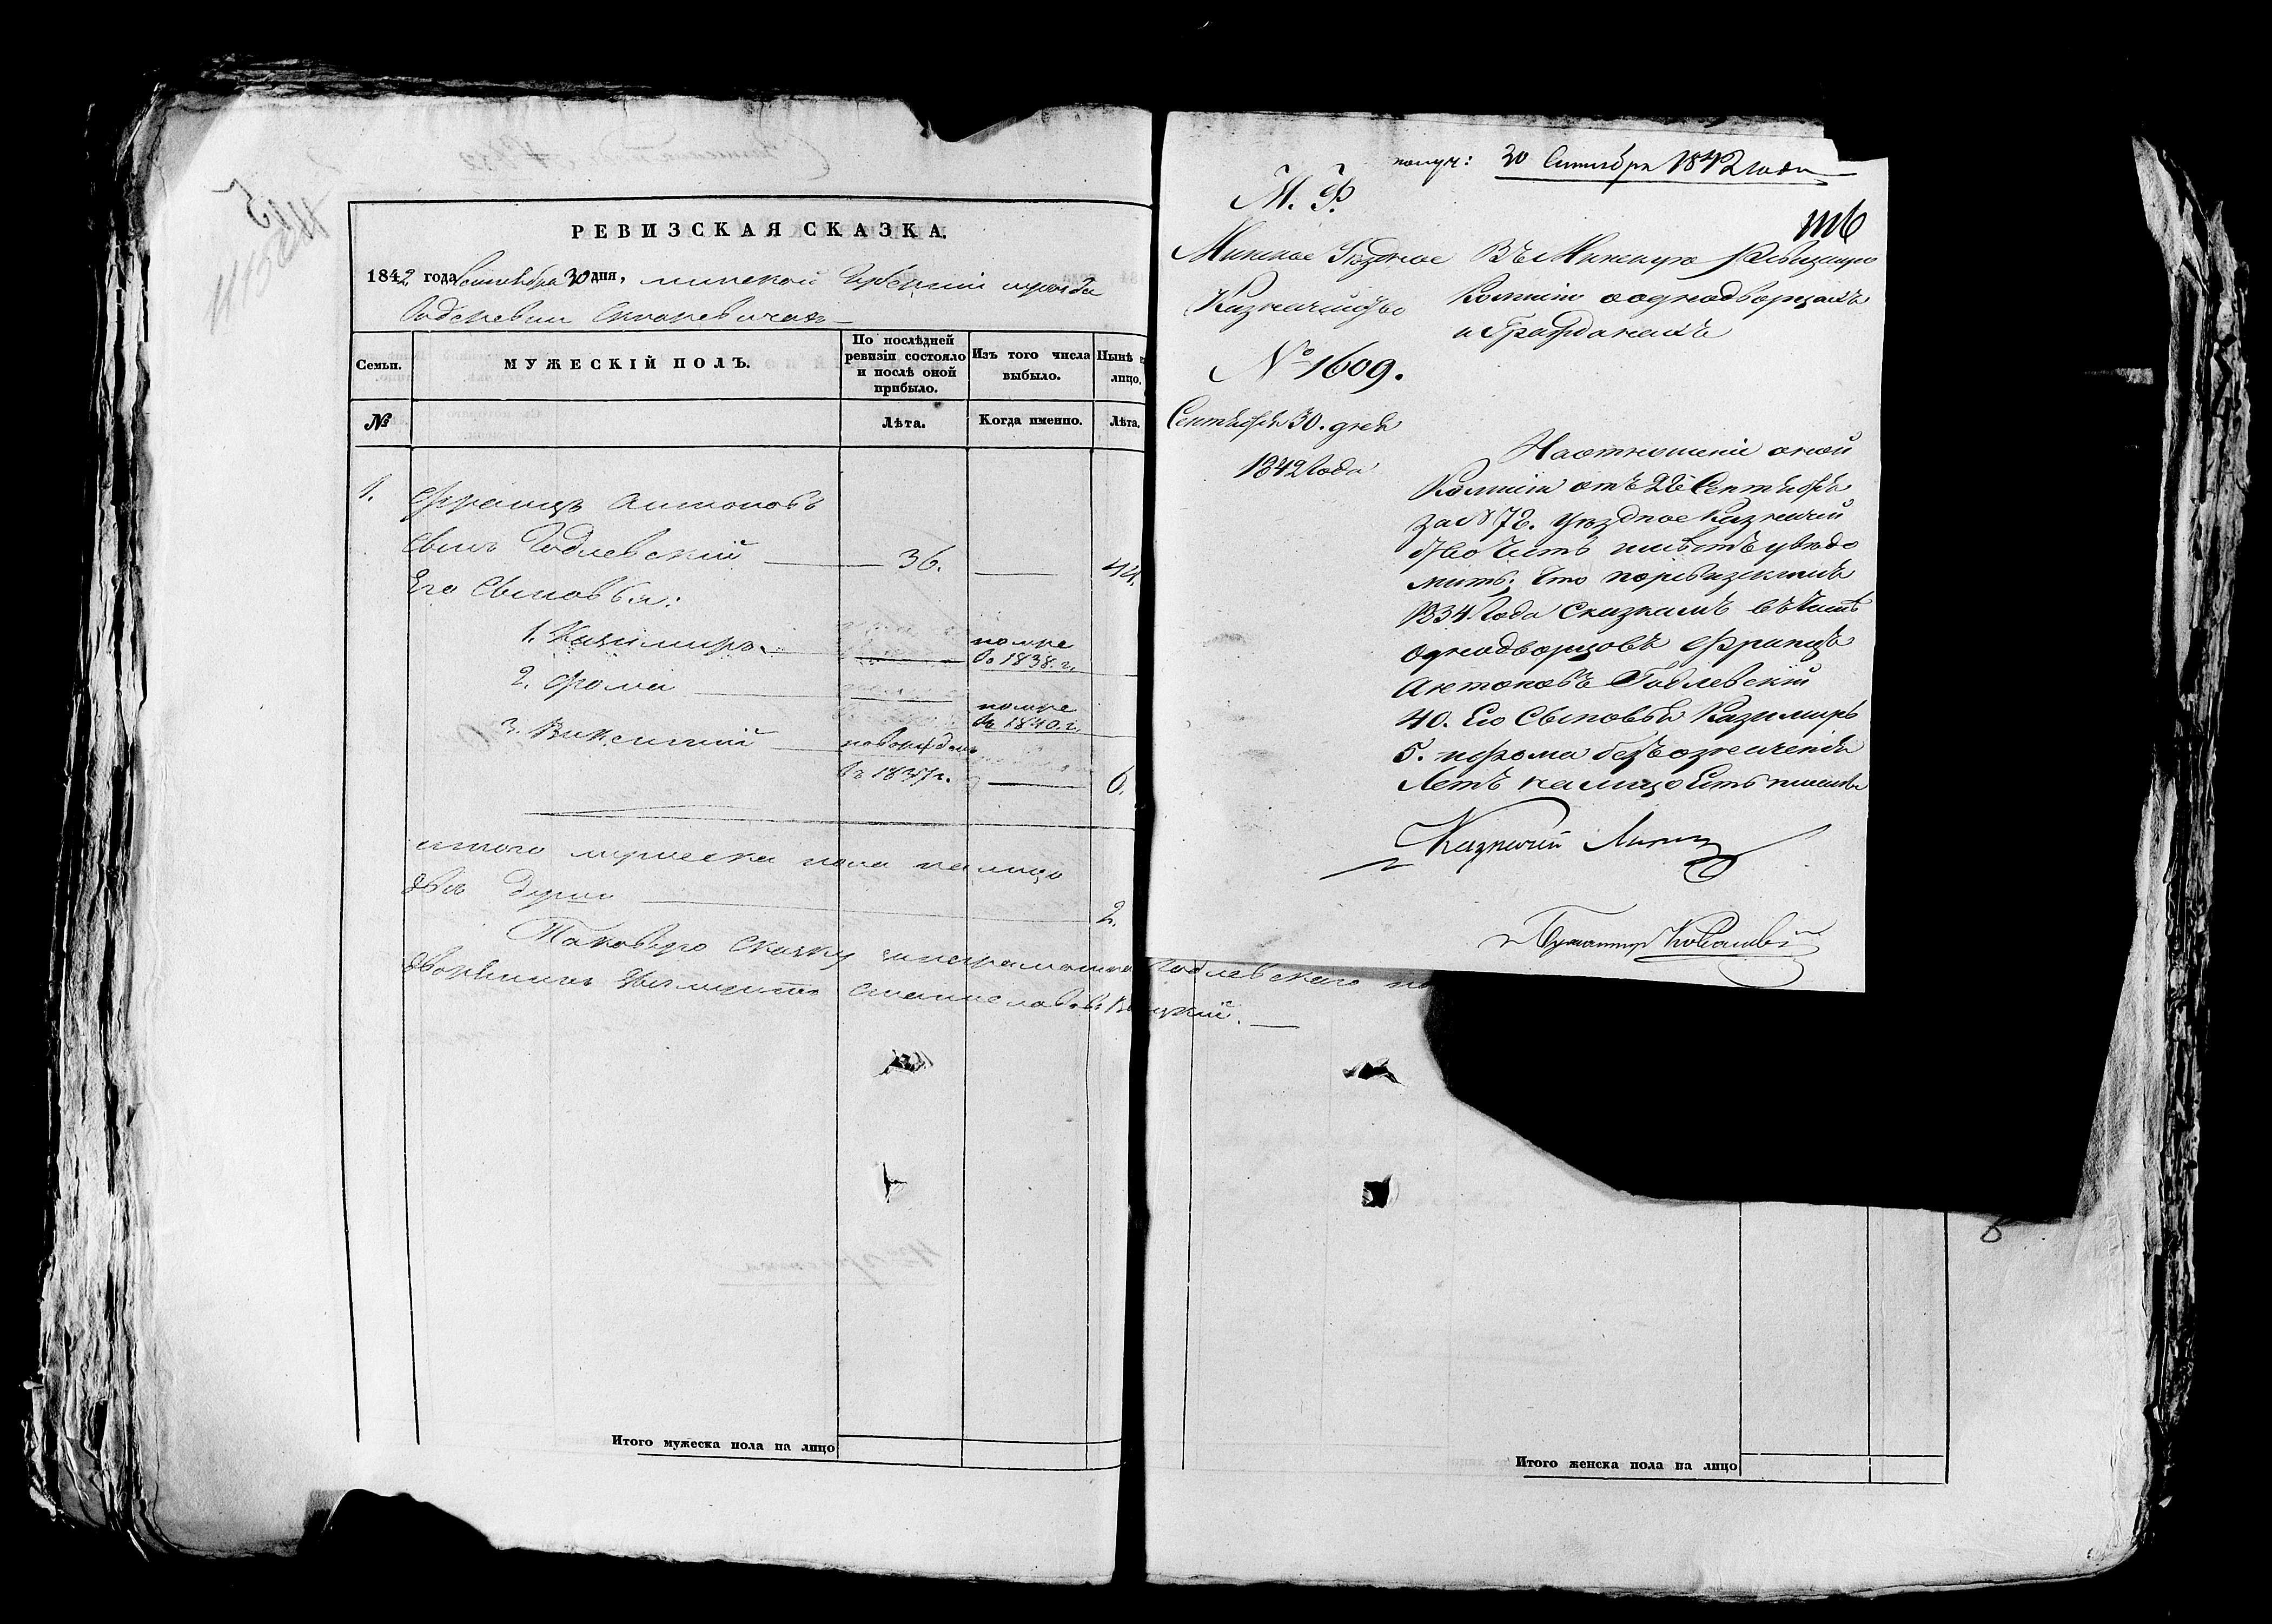 РЕВИЗСКАЯ СКАЗКА.
1842 года Сентября 30 дня, Минской Губерніи уезда
Семьи.
МУЖЕСКІЙ ПОЛЪ.
По послѣдней ревизіи состояло и послѣ оной прибыло.
Изъ того числа выбыло.
Нынѣ
лицо.
№
Лѣта.
Когда именно.
Лѣта.
1. Францъ Антоновъ
сынъ Годлевскій 36. 44.
Его Сыновья:
1. Казимиръ помре
во 1838. г.
2. Фома помре
въ 1840. г.
3. Викентій новорожденъ
въ 1837 г. 6.
итого мужеска пола налицо
двѣ души 2.
Таковую сказку за неграмотного Годлевскаго
дворянинъ Станиславовъ
Итого мужеска пола на лицо
получ: 30 Сентября 1842 года
М. Ф.
1116
Минское Уѣздное
Казначейство
№ 1609.
Сентября 30. дня
1842 Года
Въ Минскую Ревизскую
Комисію о однодворцахъ
и Гражданахъ
На отношеніе оной
Комисіи отъ 22 Сентября
за № 72. Уѣздное Казначей
ство честь имѣетъ увѣдо
мить; что по ревизскимъ
1834 Года Сказкамъ въ числѣ
однодворцовъ Францъ
Антоновъ Годлевскій
40. Его Сыновья Казимиръ
5. и Фома безъ означенія
Летъ на лицо
Казначей
Бухгалтер
Итого женска пола на лицо